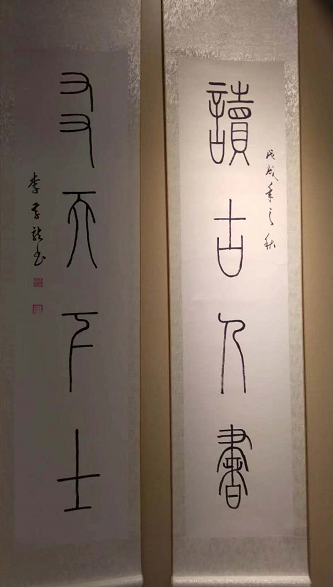 戊戌年之秋
讀古人書
友天下士
李書